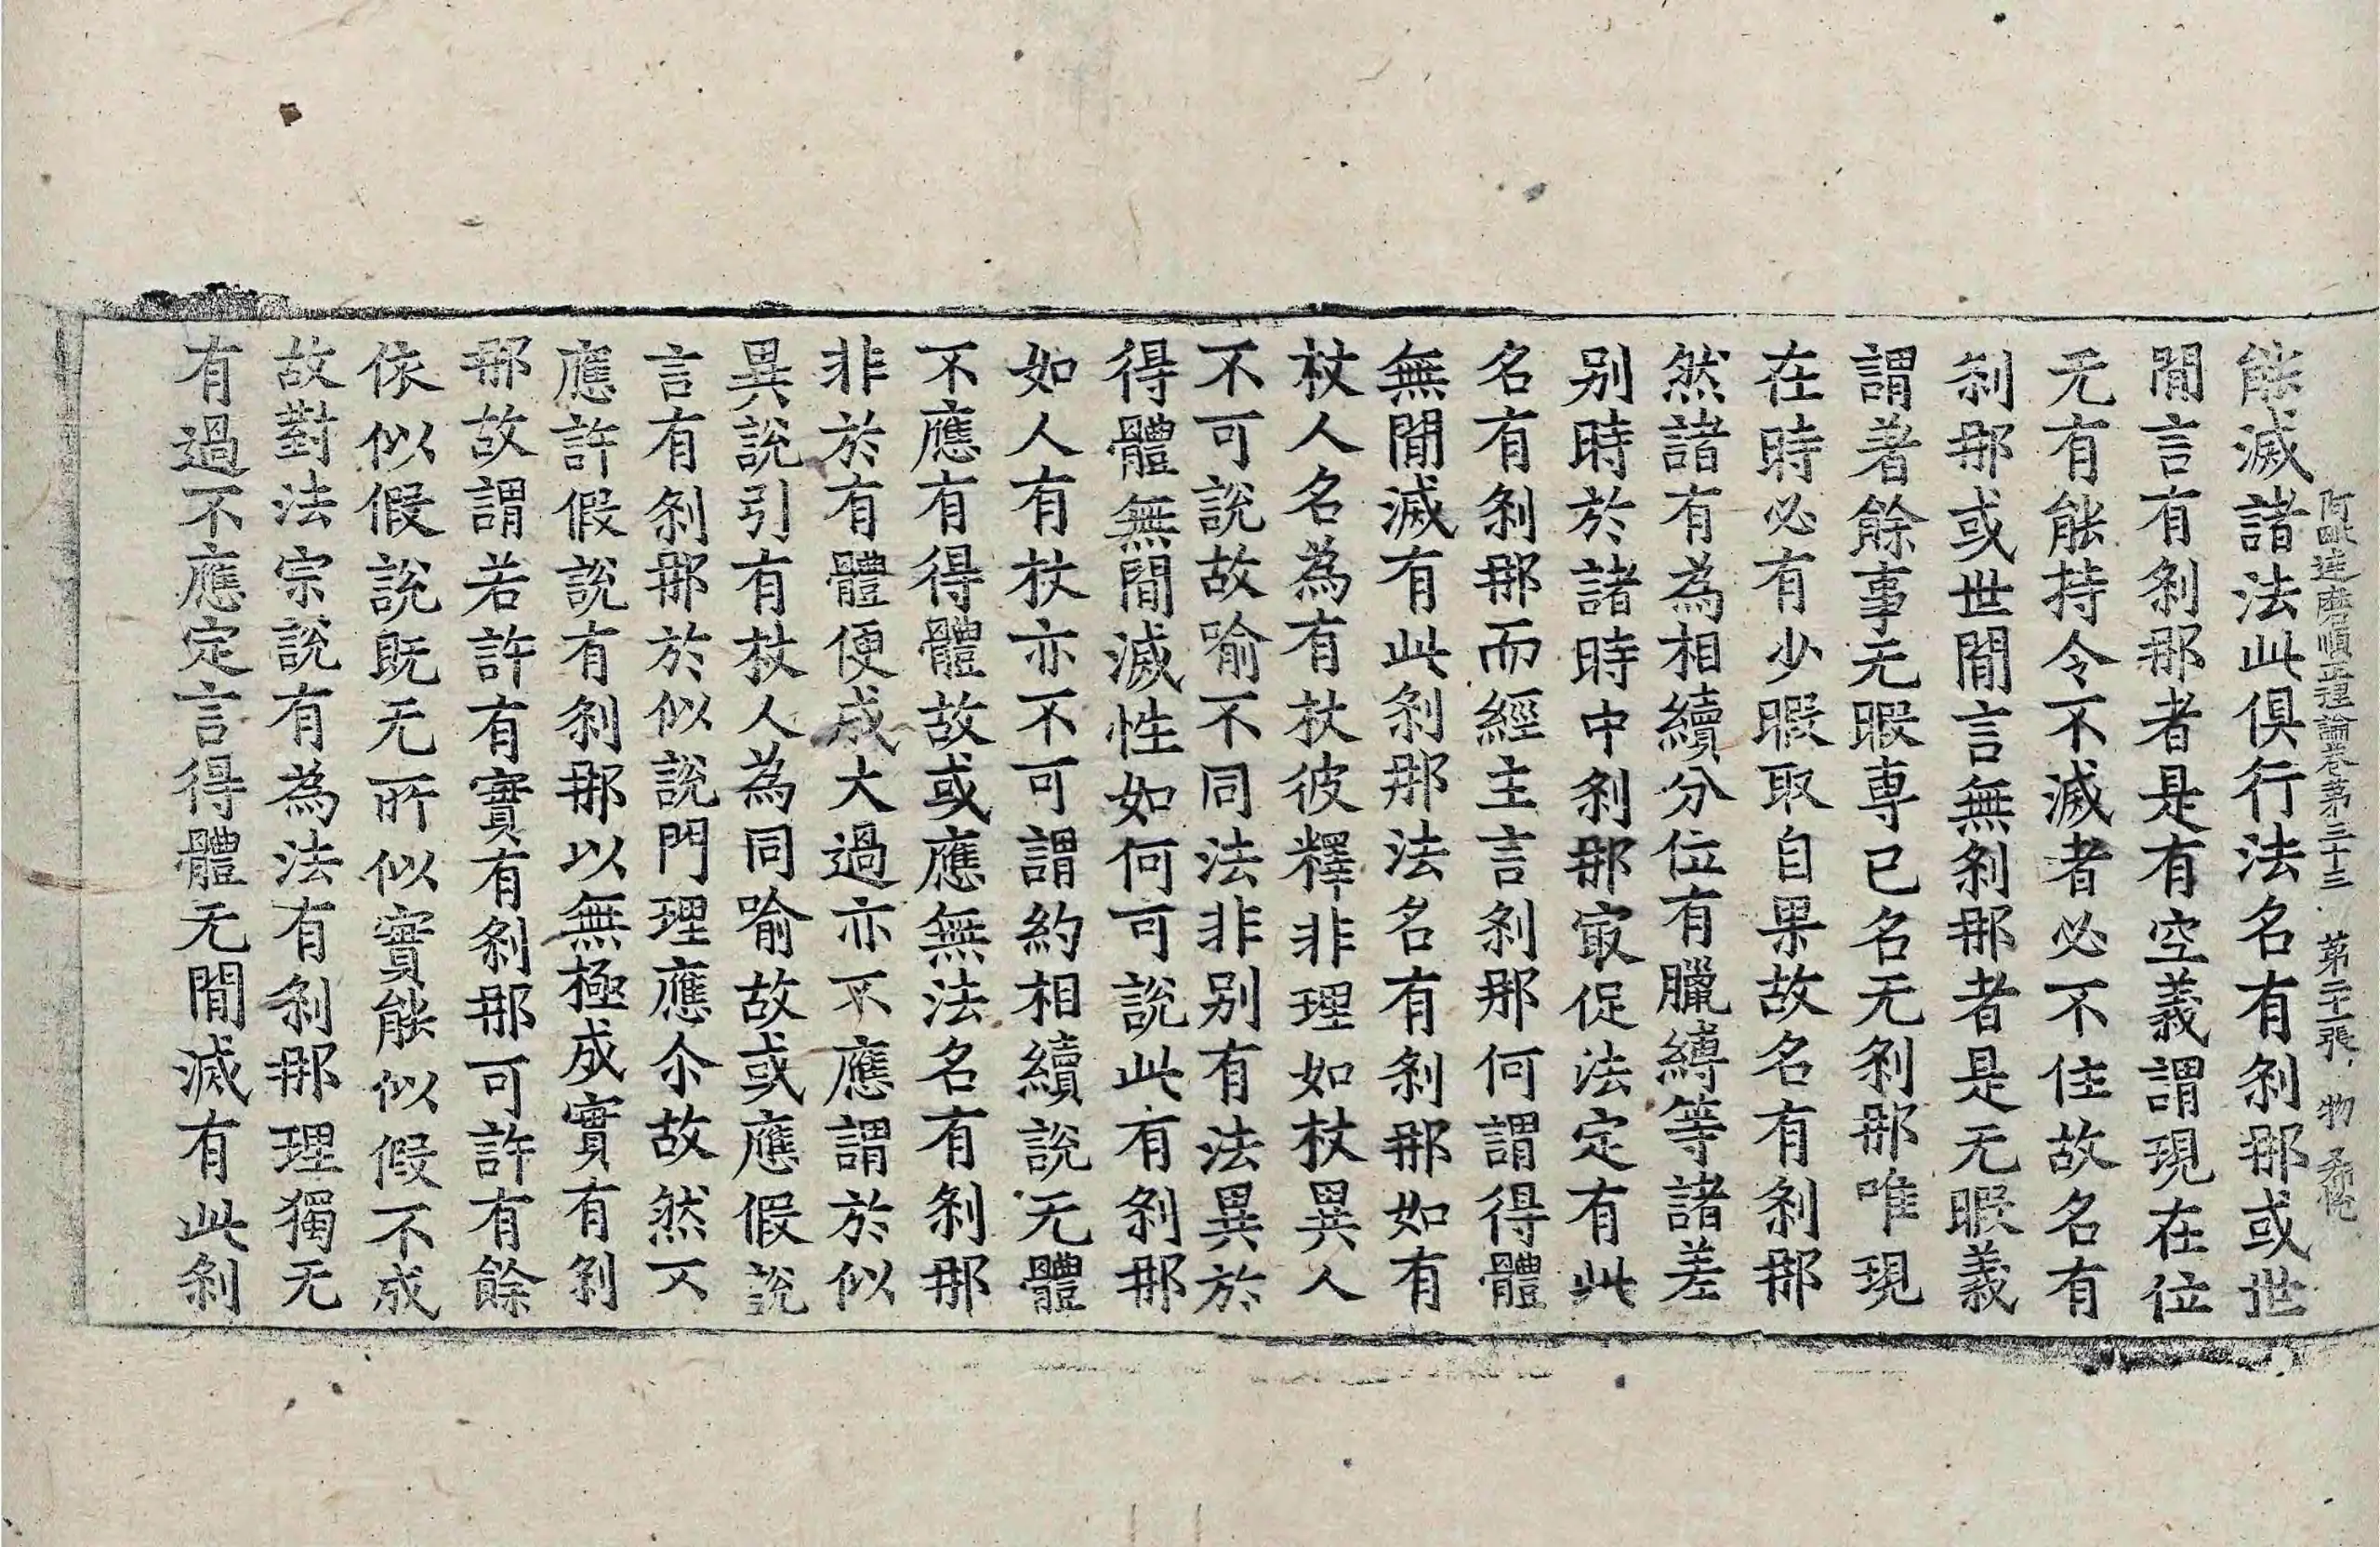 阿毗達磨順正理論卷第三十三　第二十張　物
能滅諸法此俱行法名有剎那或世
閒言有剎那者是有空義謂現在位
无有能持令不滅者必不住故名有
剎那或世閒言無剎那者是无暇義
謂著餘事无暇專已名无剎那唯現
在時必有少暇取自果故名有剎那
然諸有為相續分位有臘縛等諸差
别時於諸時中剎那㝡促法定有此
名有剎那而經主言剎那何謂得體
無閒滅有此剎那法名有剎那如有
杖人名為有杖彼釋非理如杖異人
不可說故喻不同法非别有法異於
得體無閒滅性如何可說此有剎那
如人有杖亦不可謂約相續說无體
不應有得體故或應無法名有剎那
非於有體便成大過亦不應謂於似
異說引有杖人為同喻故或應假說
言有剎那於似說門理應尒故然不
應許假說有剎那以無極成實有剎
那故謂若許有實有剎那可許有餘
依似假說既无所似實能似假不成
故對法宗說有為法有剎那理獨无
有過不應定言得體无閒滅有此剎